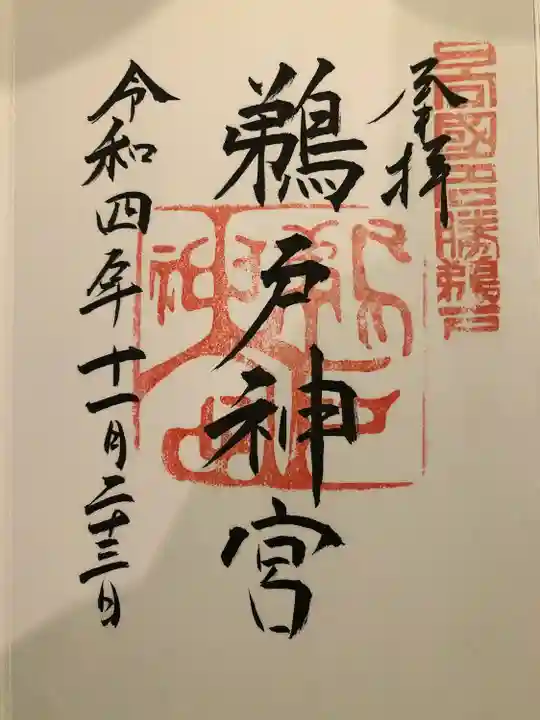 日向國名勝鵜戸
奉拝
鵜戸神宮
令和四年十一月二十三日